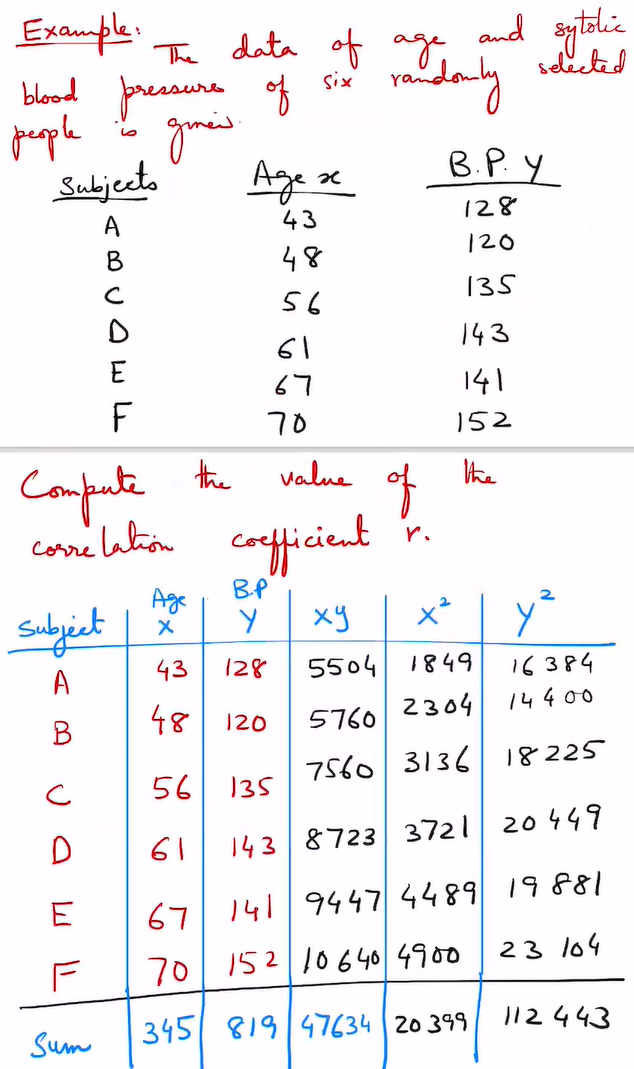 Example:
The data of age and sytolic
blood pressure of six randomly selected
people is given.
Subjects Age x B.P. y
A 43 128
B 48 120
C 56 135
D 61 143
E 67 141
F 70 152
Compute the value of the
correlation coefficient r.
Subject Age x B.P y xy x² y²
A 43 128 5504 1849 16384
B 48 120 5760 2304 14400
C 56 135 7560 3136 18225
D 61 143 8723 3721 20449
E 67 141 9447 4489 19881
F 70 152 10640 4900 23104
Sum 345 819 47634 20399 112443